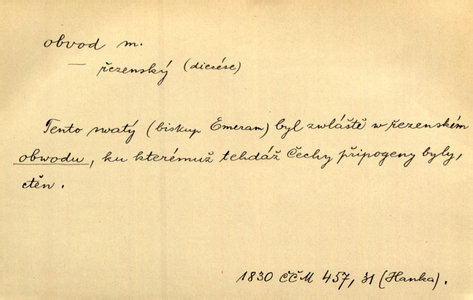 obvod m.
— řezenský (diecése)
Tento swatý (biskup Emeran) byl zwláště w řezenském
obwodu, ku kterémuž tehdáž Čechy připogeny byly,
ctěn.
1830 ČČM 457, 31 (Hanka).